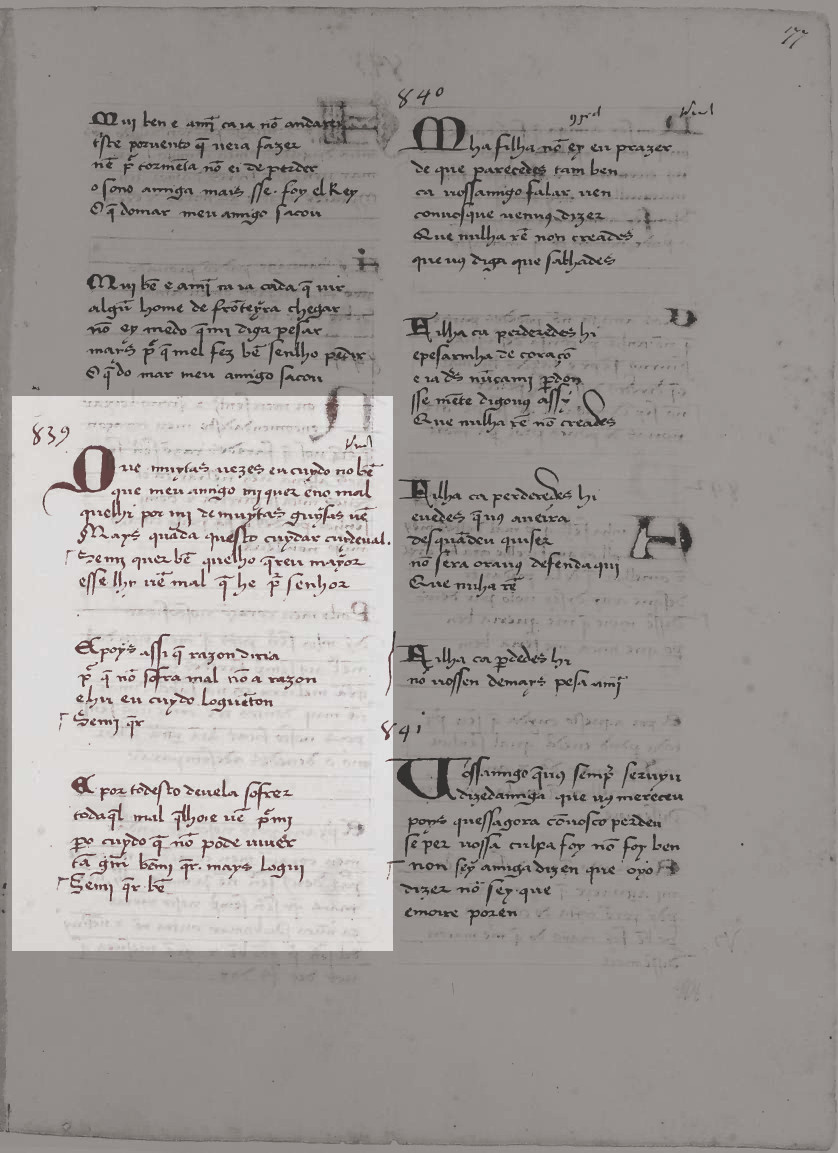 177
Mui ben e amı̃ ca ia nõ andarey
triste por uento q̃ ueia fazer
nẽ pᷓ tormẽta nõ ei de perder
o sono amiga mais sse foy el Rey
O q̃ do mar meu amigo sacou
Mui bẽ e amı̃ ca ia cada q̃ uir
algũ home de frõteyra chegar
nõ ey medo q̃ mi diga pesar
mays pᷓ q̃ mel fez bẽ senlho pedir
O q̃ do mar meu amigo sacou
839
Que muytas uezes eu cuydo no bẽ
que meu amigo mi quer e no mal
quelhi por mi de muytas guysas uẽ
Mays quãda questo cuydar cuydeual.
Semi quer bẽ quelho q̃reu mayor
esselhi uẽ mal q̃ he pᷓ senhor
E poys assi q̃ razon diria
pᷓ q̃ nõ sofra mal nõ a razon
e hu eu cuydo logu entom
Semi q̃r
E por todesto deuela sofrer
todaq̃l mal q̃lhoie uẽ pᷓ mi
ꝑo cuydo q̃ nõ pode uiuer
tã gm̃ bẽmi q̃r. mays logui
Semi q̃r bẽ
840
Mha filha nõ ey eu prazer
de que parecedes tam ben
ca uossamigo falar uen
conuosque uenuꝯ dizer
Que nulha rẽ non creades
que uꝯ diga que sabhades
Filha ca perderedes hi
e pesarmha de coraçõ
e ia ds̃ nũcami ꝑdon
sse mẽte digouꝯ assy
Que nulha rẽ nõ creades
Filha ca perderedes hi
euedes q̃uꝯ aueira
desquãdeu quiser
nõ sera orauꝯ defenda qui
Que nulha rẽ
Filha ca ꝑdedes hi
nõ uossen demays pesa amı̃
841
Vossamigo q̃uꝯ sempᷓ seruyu
dized amiga que uꝯ mereceu
poys quessagora cõuosco perdeu
se per uossa culpa foy nõ foy ben
non sey amiga dizen que oyo
dizer nõ sey que
e moire poren